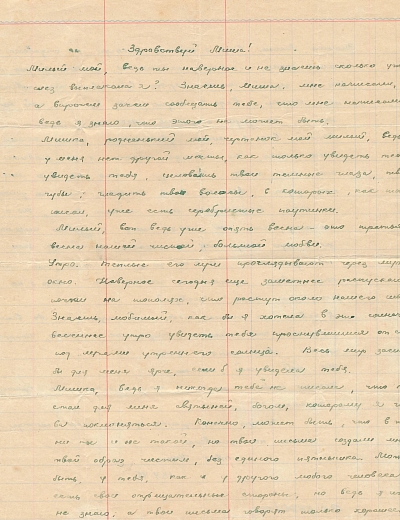 Здравствуй Миша!
Милый мой, ведь ты наверное и не знаешь сколько у
слез выплакала я? Знаешь, Миша, мне написали,
а впрочем зачем сообщать тебе, что мне написали
ведь я знаю, что этого не может быть.
Мишка, родненький мой, чертенок мой милый, ведь
у меня нет другой мечты, как только увидеть те
увидеть тебя, целовать твои темные глаза, тв
губы, гладить твои волосы, в которых, как
уже есть серебристые паутинки.
Милый, вот ведь уже опять весна - это третья
весна нашей чистой, большой любви.
Утро. Теплые его лучи проглядывают через
окно. Наверное сегодня еще заметнее распускаю
на тополях, что растут около нашего
Знаешь любимый, как бы я хотела в это
весеннее утро увидеть тебя проснувшимся от
под лучами утреннего солнца. Весь мир
бы для меня ярче, если б я увидела тебя.
Мишка, ведь я никогда тебе не писала, что
стал для меня святыней, богом, которому я
бы поклоняться. Конечно, может быть, что в
ни ты и не такой, но твои письма создали мне
твой образ чистым, без единого пятнышка. Мож
быть у тебя, как и у другого любого человека
есть свои отрицательные стороны, но ведь я их
не знаю, а твои письма говорят только хорошее